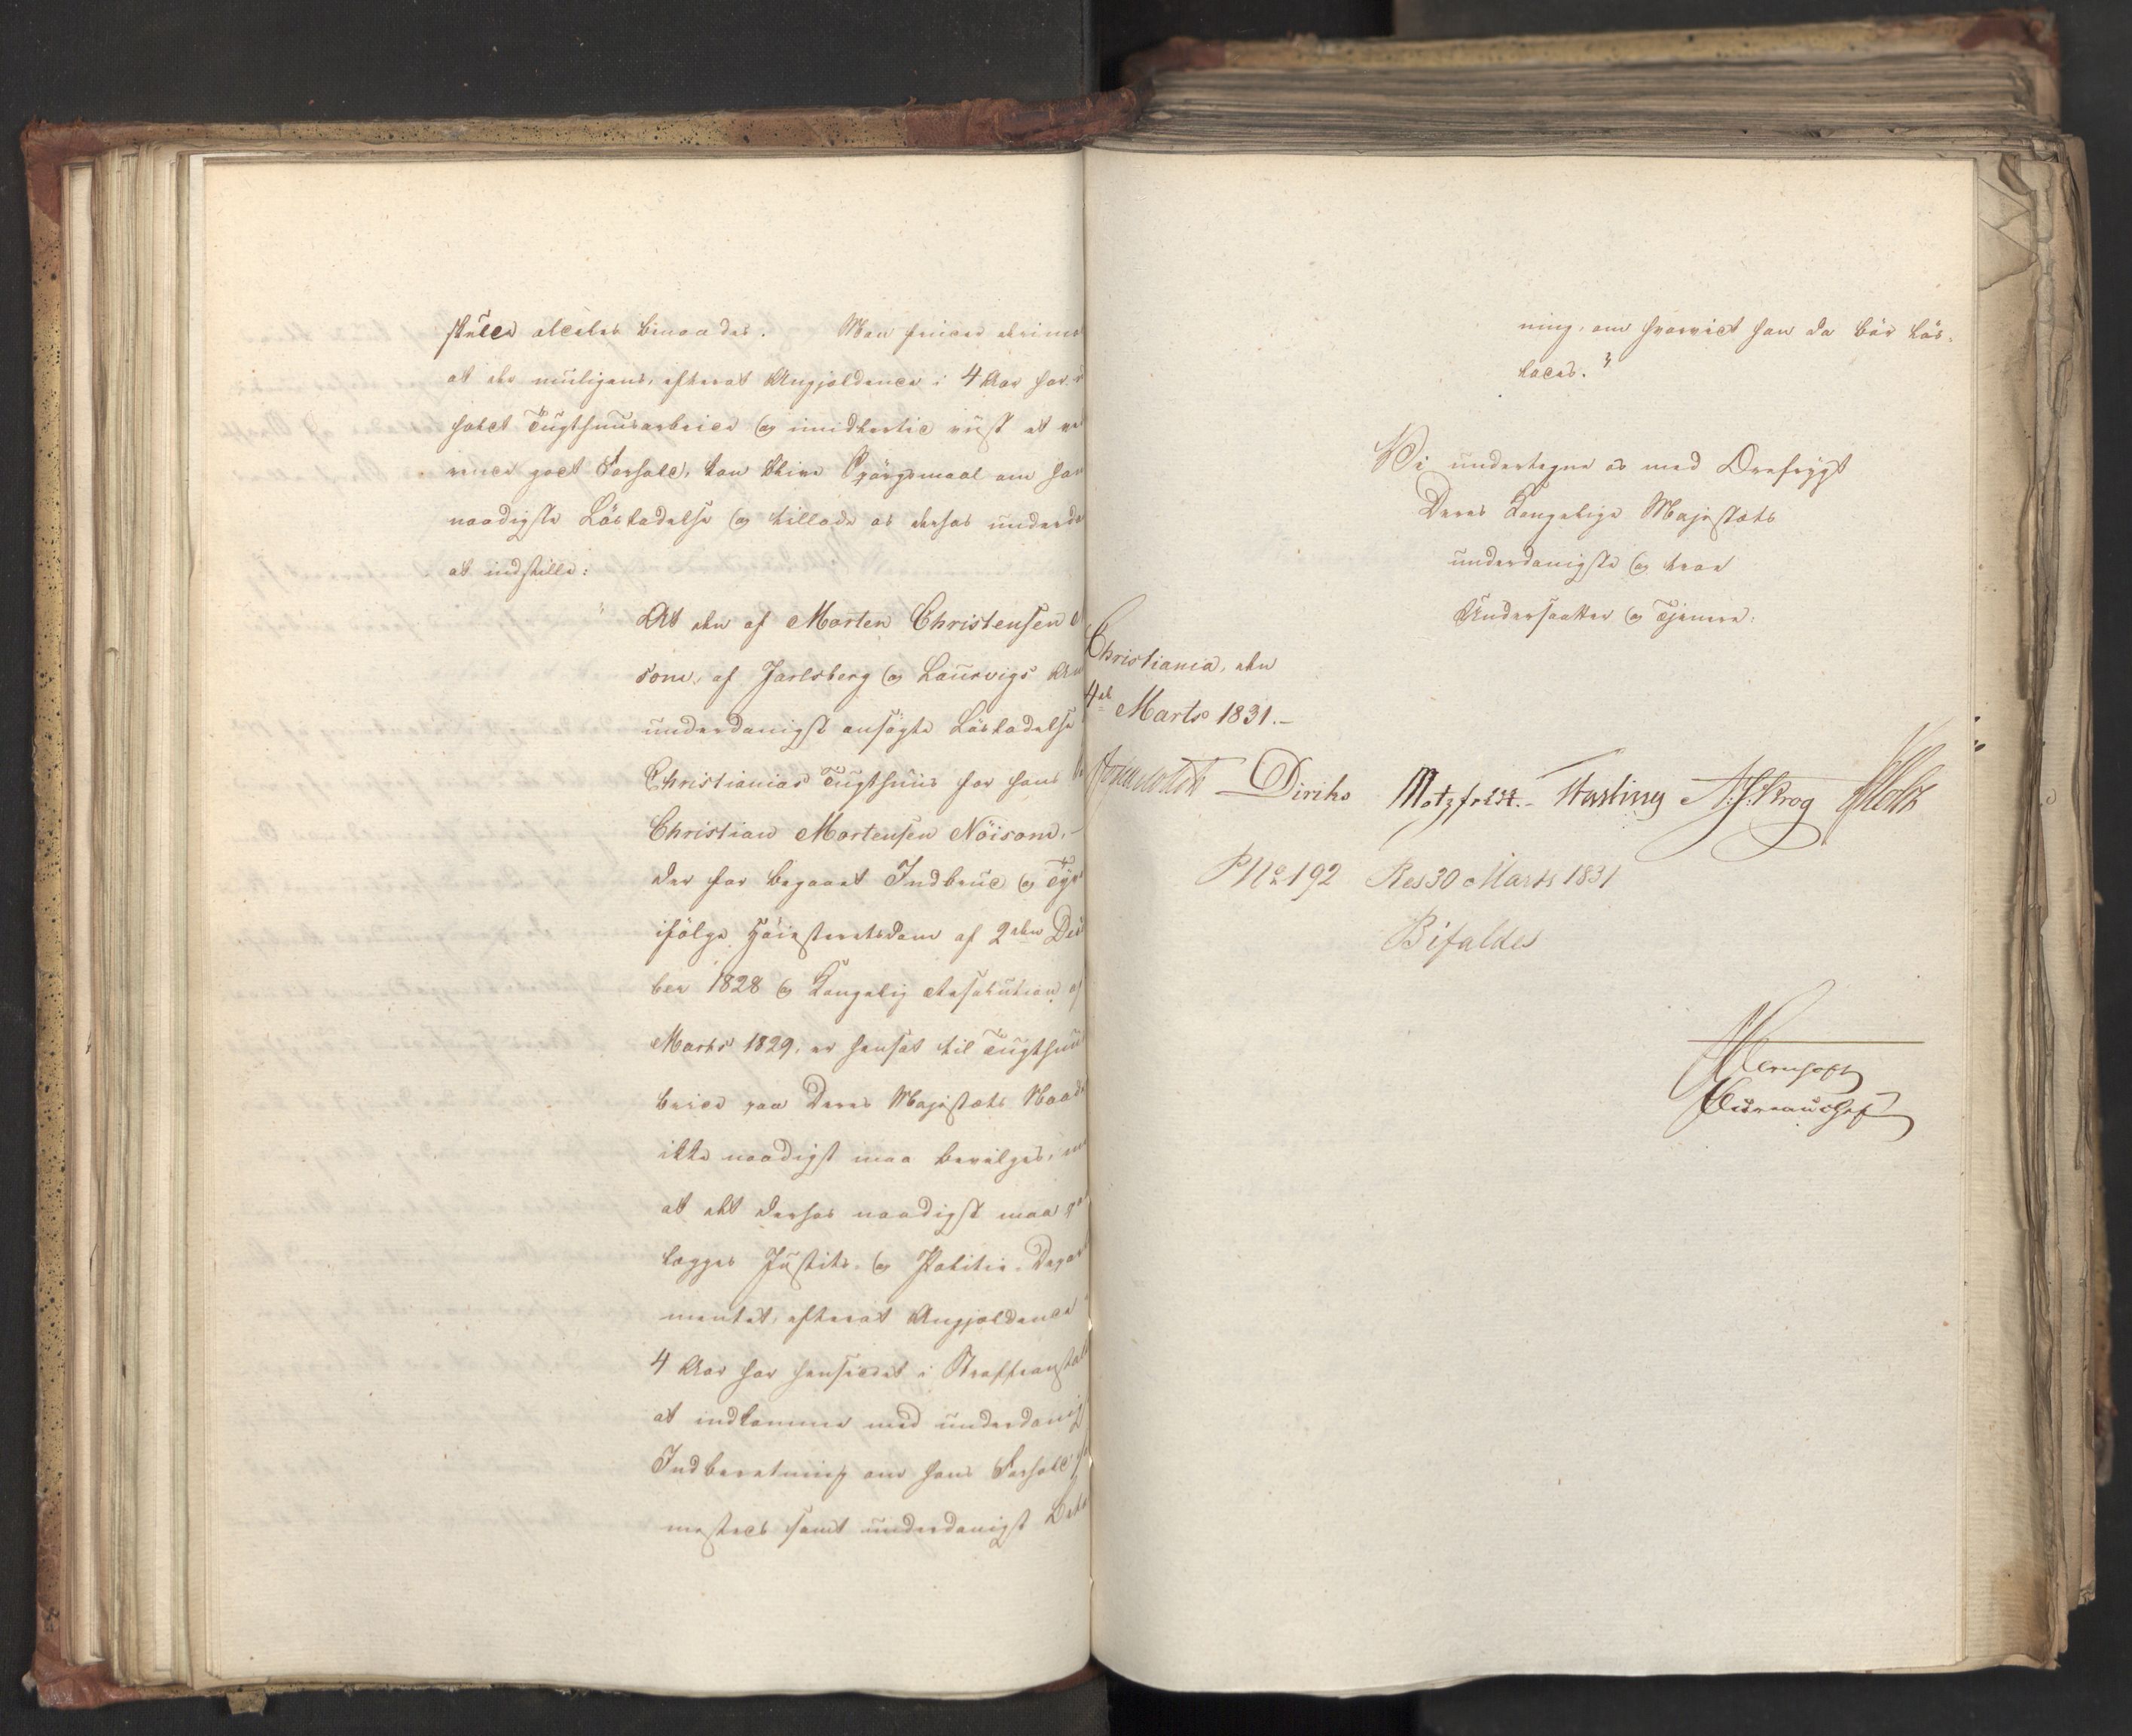 skulle aldeles benaades. Man finder
at der muligens, efterat Angjældende i 4 Aar har
holdt Tugthuusarbeide og imidlertid viist et
vende godt Forhold, kan blive Spørgsmaal om hans
naadigste Løsladelse og tillade os derfor underd
at indstille:
" At den af Morten Christensen
som, af Jarlsberg og Laurvigs Am
underdanigst ansøgte Løsladelse
Christianias Tugthuus for hans
Christian Mortensen Nöisom,
der for begaaet Indbrud og Tyv
ifølge Høiesteretsdom af 2den De
ber 1828 og Kongelig Resolution af
Marts 1829, er hensat til Tugthuus
beide paa Deres Majestæts Naade
ikke naadigst maa bevilges, m
at det derhos naadigst maa pa
lægges Justits- og Politie-Depart
mentet, efterat Angjældende
4 Aar har hensiddet i Straffeanstalt
at indkomme med underdanig
Indberetning om hans Forhold
mestad samt underdanigst Betæ
ning, om hvorvidt han da bør løs-
lades."
Vi undertegne os med Ærefrygt
Deres Kongelige Majestæts
underdanigste og troe
Undersaatter og Tjenere:
Christiania, den
4de Marts 1831.-
Diriks Motzfeldt.- Fasting A. S. Krog Holst
P No 192 Res 30 Marts 1831
Bifaldes
Bureauchef